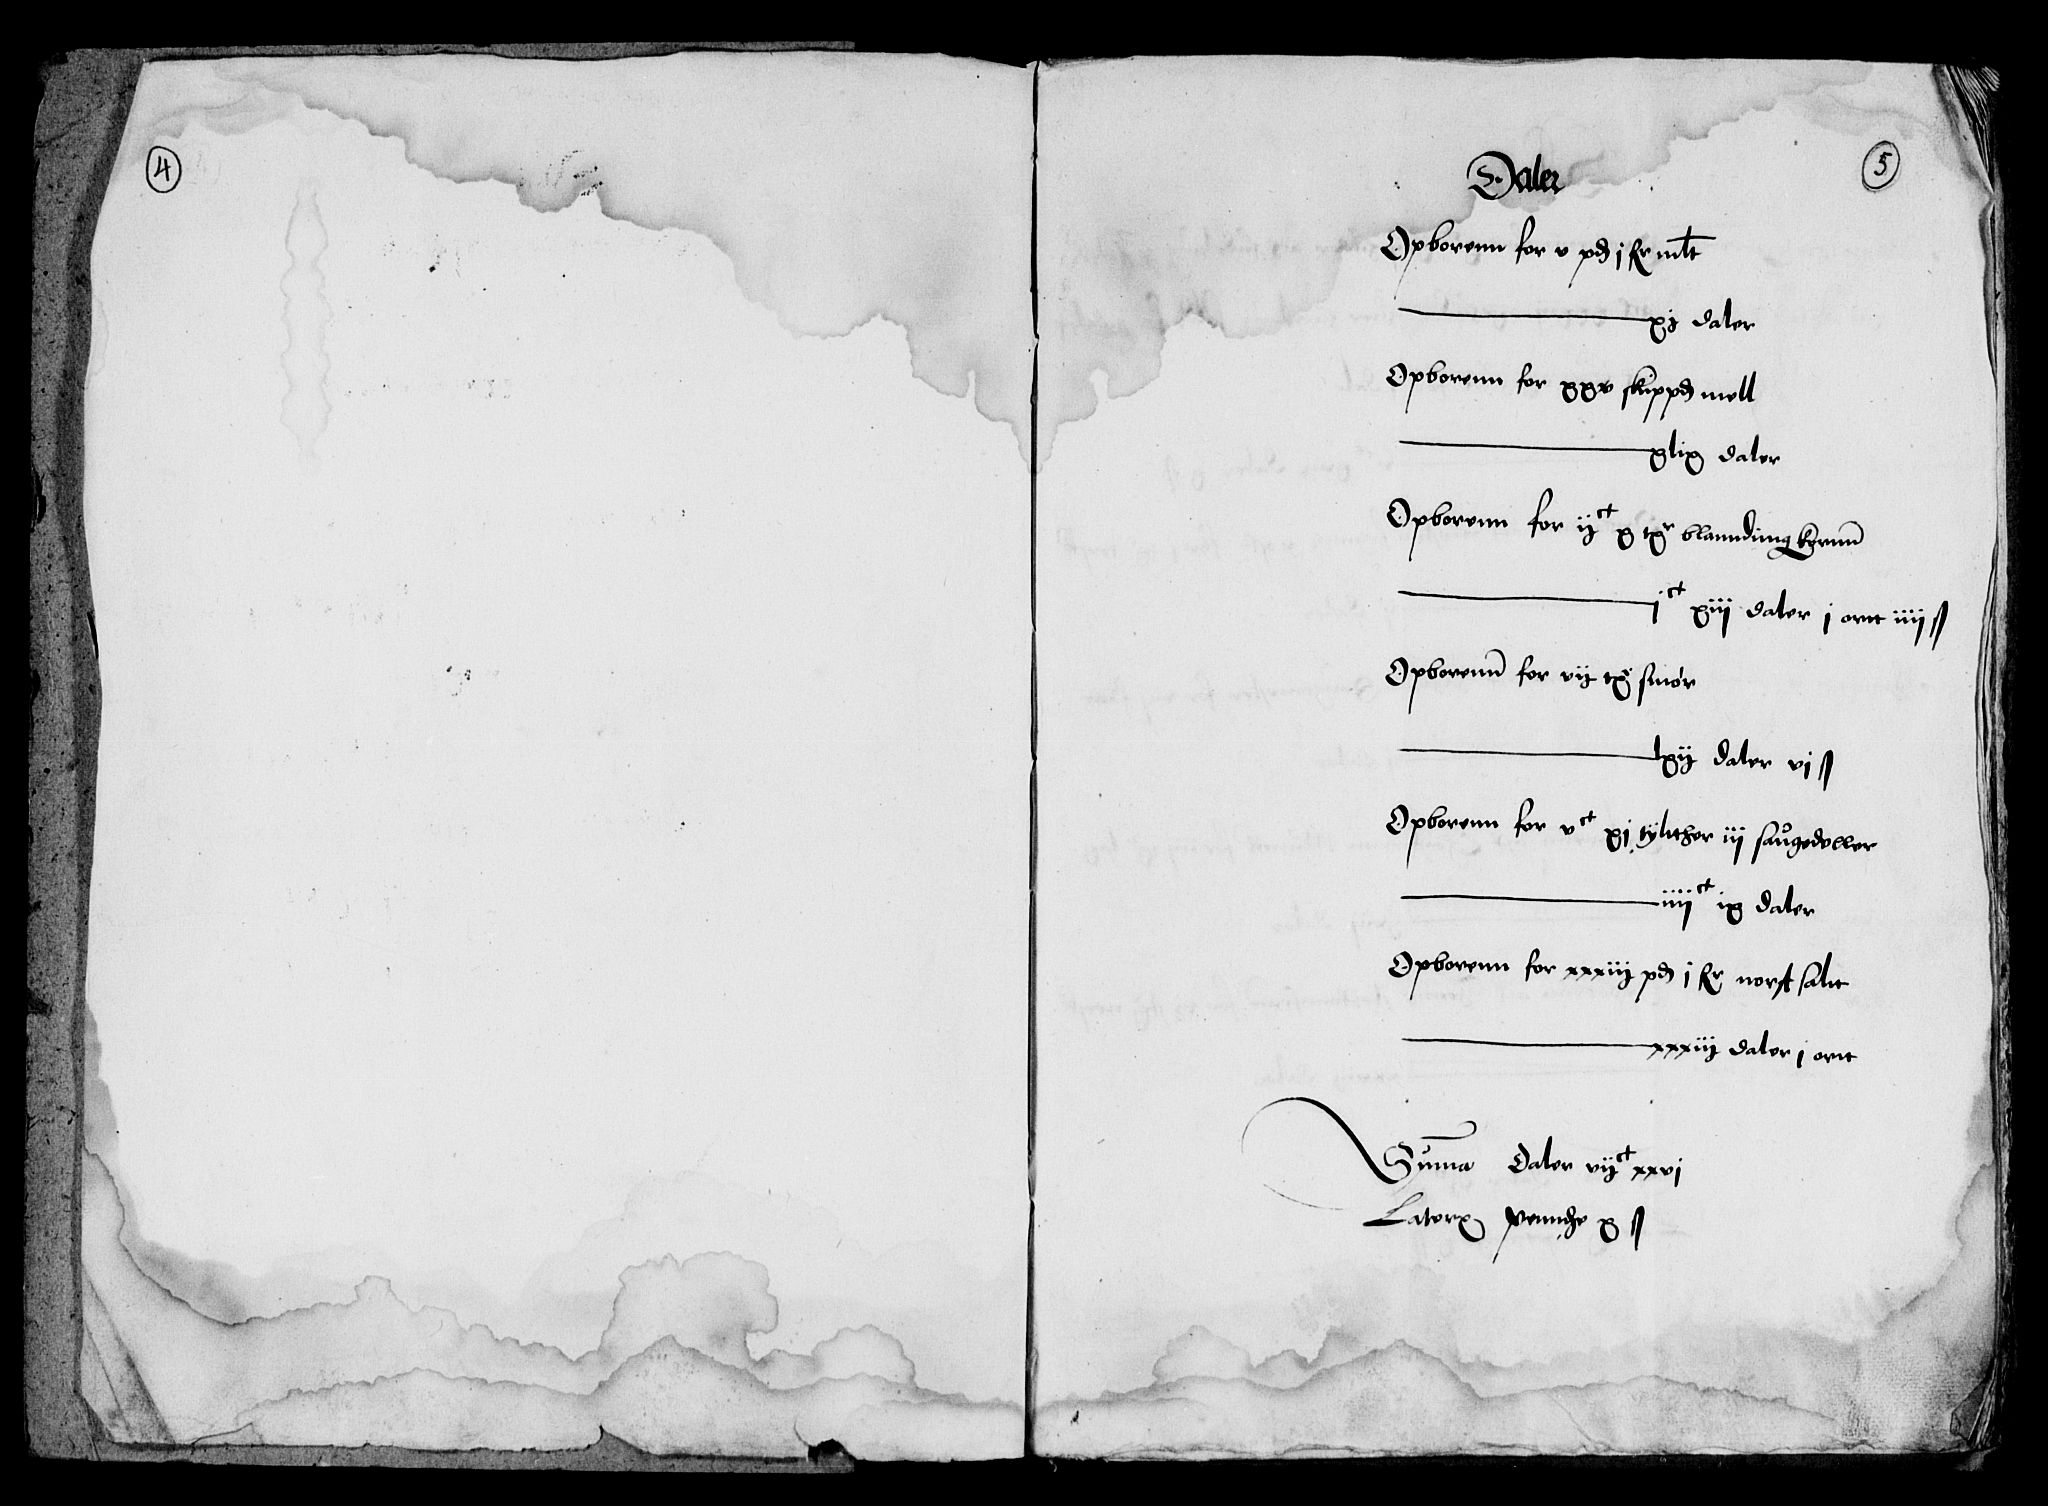 4
5
Daler
Opborenn for v pd j ꝼr mlt
xj daler
Opborenn for xxv skippd mell
xlix daler
Opborenn for ijct x tr blanndingkornn
jct xiij daler j ort iiij ß
Opborenn for vij tr smør
lxij daler vj ß
Opborenn for vct xj tylther iij saugedeller
iiijct ix daler
Opborenn for xxxiij pd j ꝼr norst salt
xxxiij daler j ort
Suma Daler vijct xxvj
Laterx Penndge x ß